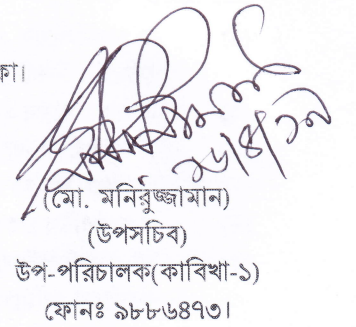 কা।
২৬/৪/১৭
(মো. মনিরুজ্জামান)
(উপসচিব)
উপ-পরিচালক(কাবিখা-১)
ফোনঃ ৯৮৮৬৪৭৩।